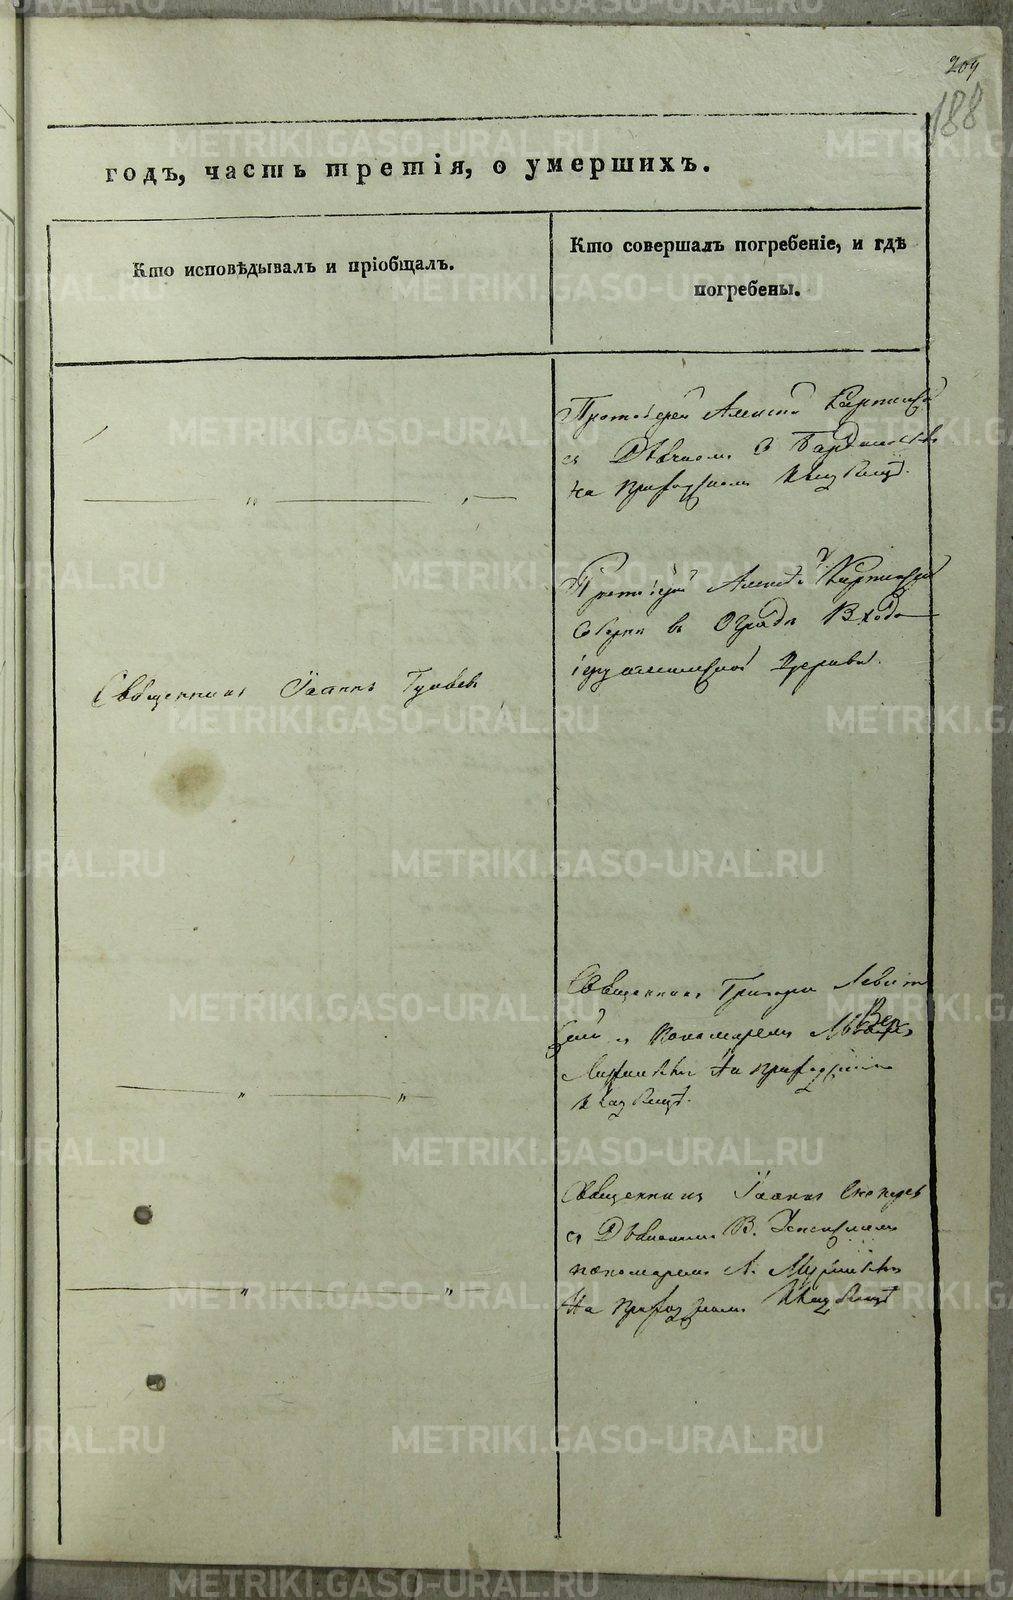 209
188
годъ, часть третія, о умершихъ.
Кто исповѣдывалъ и пріобщалъ.
Кто совершалъ погребеніе, и гдѣ
погребены.
Протоіерей Алексій
съ Діакономъ В
на приходскомъ кладбищѣ.
Протоіерей Алексій
соборнѣ въ Оградѣ Входо
іерусалимской Церкви.
Священникъ Іоаннъ
Священникъ Григорій Левит
скій съ пономаремъ
на приходскомъ
кладбищѣ.
Священникъ Іоаннъ
съ Діакономъ В. Успенскимъ
пономаремъ А.
на приходскомъ кладбищѣ
METRIKI.GASO-URAL.RU